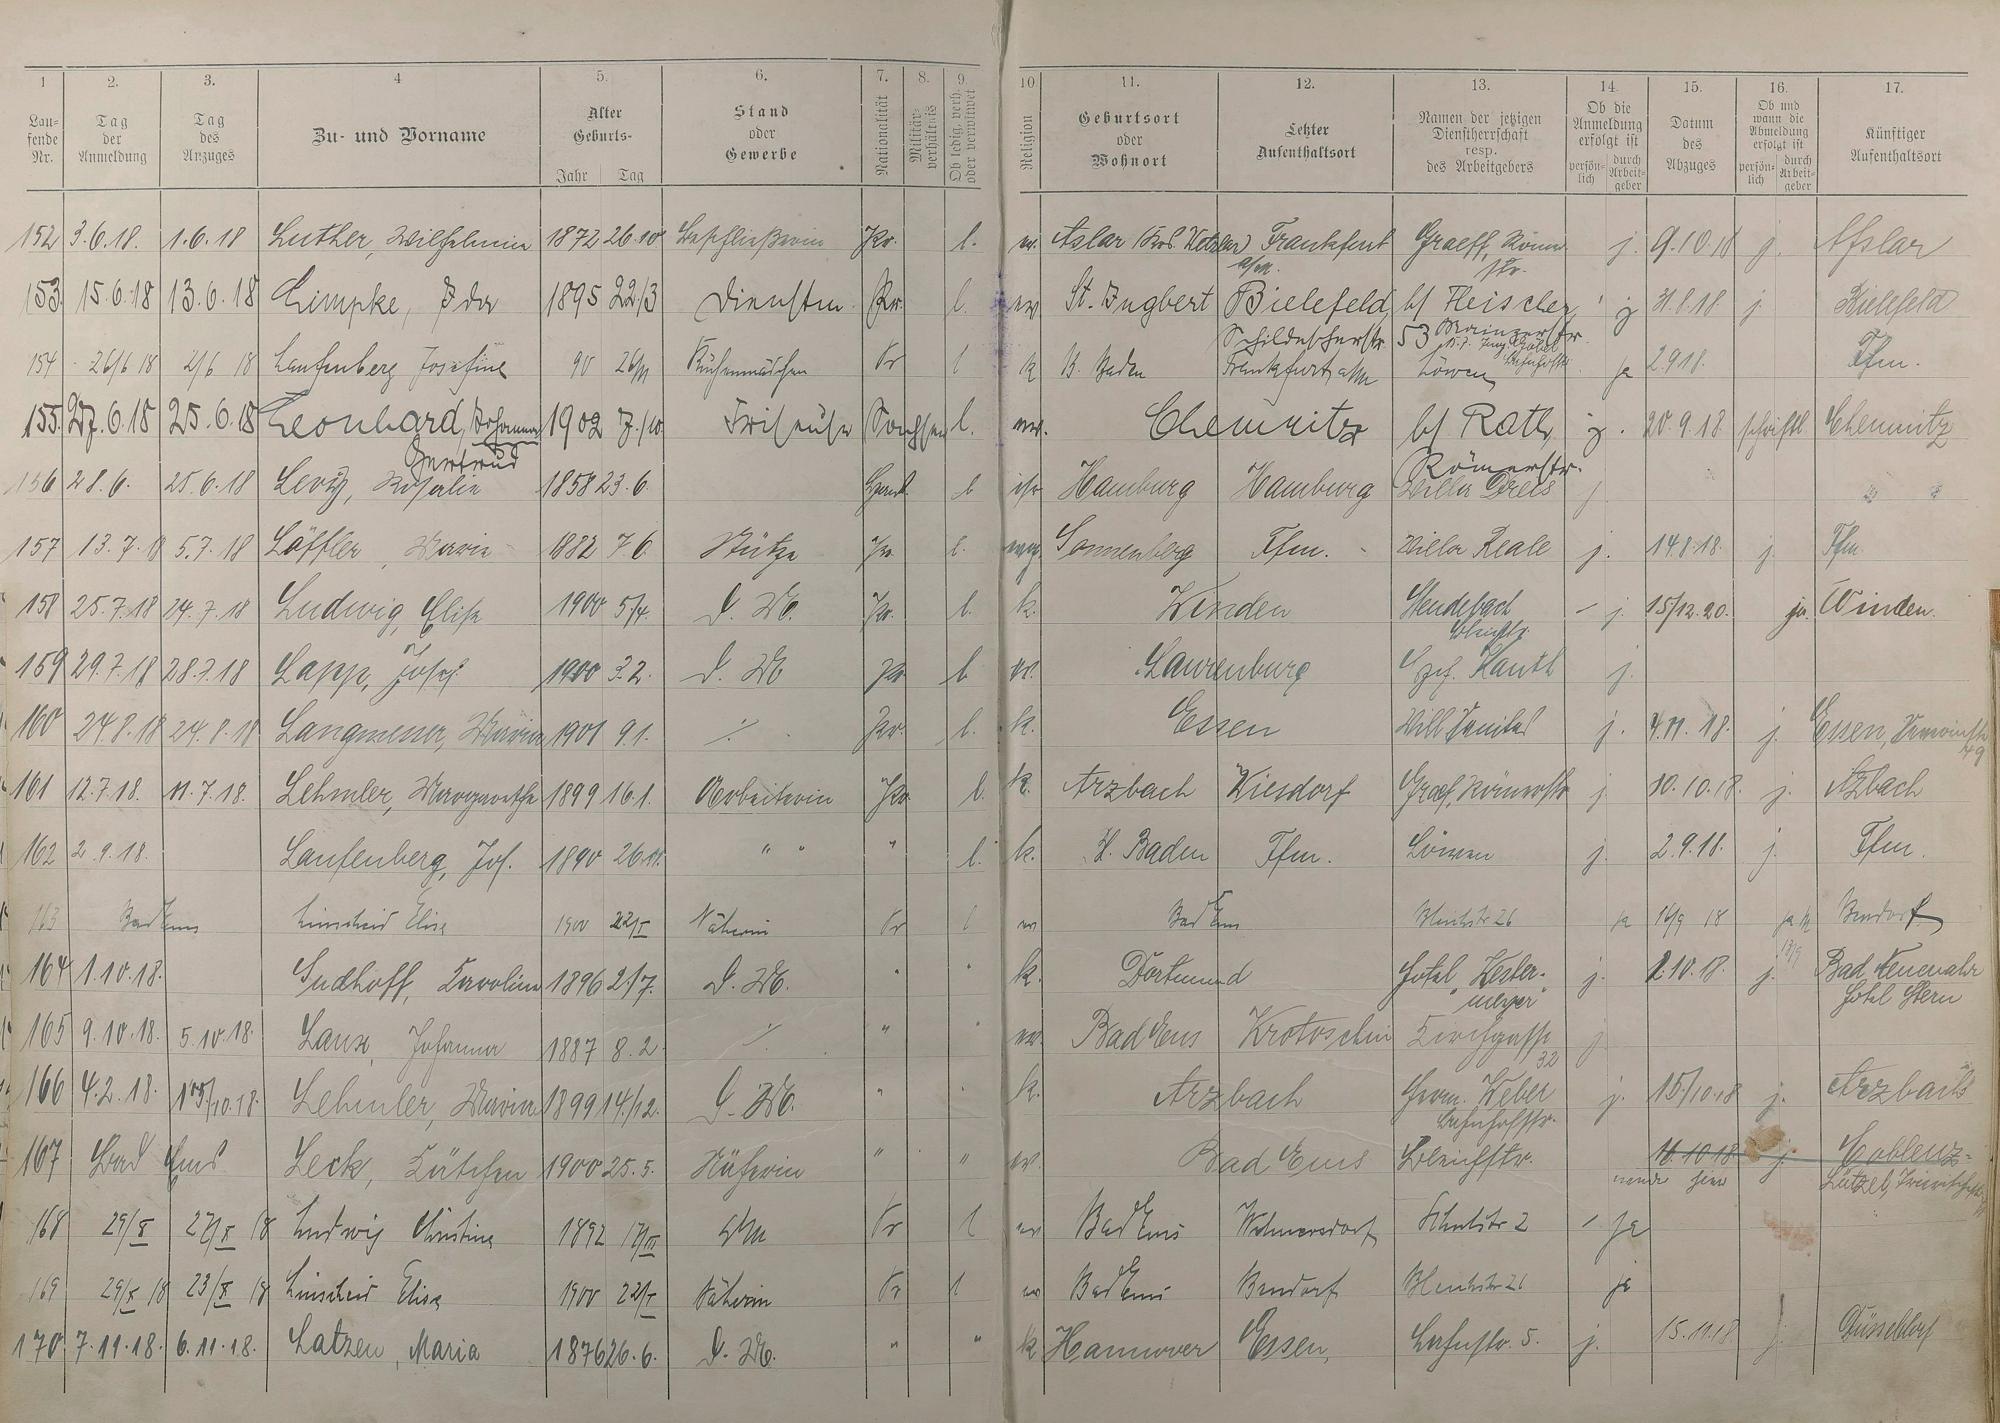 1 2. 3. 4 5. 6. 7. 8. 9. 10 11. 12. 13. 14. 15. 16. 17.
Lau-
fende
Nr.
Tag
der
Anmeldung
Tag
des
Anzuges
Zu- und Vorname
Alter
Geburts-
Jahr Tag
Stand
oder
Gewerbe
Nationalität
Militär-
verhältnis
Ob ledig, verh.
oder verwitwet
Religion
Geburtsort
oder
Wohnort
Letzter
Aufenthaltsort
Namen der jetzigen
Dienstherrschaft
resp.
des Arbeitgebers
Ob die
Anmeldung
erfolgt ist
persön-
lich
durch
Arbeit-
geber
Datum
des
Abzuges
Ob und
wann die
Abmeldung
erfolgt ist
persön-
lich
durch
Arbeit-
geber
Künftiger
Aufenthaltsort
152 3.6.18. 1.6.18 Luther, Wilhelmine 1872 26.10 Pr. l. Aslar (Krs. Wetzlar) Frankfurt Graeff, Röm j. 9.10.18 j. Asslar
a/M. str.
153 15.6.18 13.6.18 Limpke, Ida 1895 22/3 Dienstm. Pr. l. ev St. Ingbert Bielefeld b/ Fleischer, j 31.8.18 j. Bielefeld
Schildescherstr. 53 Mainzerstr.
154 26/6 18 2/6 18 Laufenberg Josefine 90 26/11 Küchenmädchen Pr l k B. Baden Frankfurt a/M Löwen Bahnhofstr. ja 2.9.18. Ffm.
155. 27.6.18 25.6.18 Leonhard, Johanna 1902 7./10 Friseuse Sachsen l. ev. Chemnitz b/ Rath, j. 20.9.18 schriftl Chemnitz
Gertrud Römerstr.
156 28.6. 25.6.18 Levy, Rosalie 1858 23.6. Hamb. l isr Hamburg Hamburg Villa Dreis j
157 13.7.18 5.7.18 Löffler, Maria 1882 7.6. Stütze Pr. l. Sonnenberg Ffm. Villa Reale j. 14.8.18. j. Ffm.
158 25.7.18 24.7.18 Ludwig, Elise 1900 5/4. D. M. Pr. l. k. Winden j. 15/12.20. ja. Winden.
159 29.7.18 28.7.18 Lapp, Josef 1900 3.2. D. M. pr l ev. Laurenburg j.
160 24.8.18 24.8.18 Langmesser, Maria 1901 9.1. ./. Pr. l. k. Essen j. 4.11.18. j. Essen,
49
161 12.7.18. 11.7.18. Lehmler, Margarethe 1899 16.1. Arbeiterin Pr. l. k. Arzbach Wiesdorf Graef, Römerstr. j. 10.10.18. j. Azbach
162 2.9.18. Laufenberg, Jos. 1890 26.11. " " " l. k. B. Baden Ffm. Löwen j. 2.9.18. j. Ffm.
163 Bad Ems Linscheid Elise 1900 22/I Näherin Pr l ev Bad Ems Bleichstr 26 ja 16/9 18 ja Bendorf
164 1.10.18. Sudhoff, Karoline 1896 2./7. D. M. " " k. Dortmund Hotel "Wester- j. 2.10.18. j. Bad Neuenahr
meyer" Hotel Stern
165 9.10.18. 5.10.18. Laux, Johanna 1887 8.2. ./. " " ev. Bad Ems Krotoschin Kirchgasse j
32
166 4.2.18. 15/10.18. Lehmler, Maria 1899 14./12. D. M. " " k. Arzbach Herm. Weber j. 15/10.18 j. Arzbach
Bahnhofstr.
167 Bad Ems Leck, Kätchen 1900 25.5. Näherin " " ev. Bad Ems Bleichstr. 16.10.18 j. Coblenz-
wieder hier Lützel,
168 29/X 27/X 18 Ludwig Christine 1892 17/III DM Pr l ev Bad Ems Wilmersdorf Schulstr 2 / ja
169 29/X 18 23/X 18 Linscheid Elise 1900 22/I Näherin Pr l ev Bad Ems Bendorf Bleichstr 26 ja
170. 7.11.18. 6.11.18. Latzen, Maria 1876 26.6. D. M. " " k Hannover Essen, Lahnstr. 5. j. 15.11.18 j. Düsseldorf